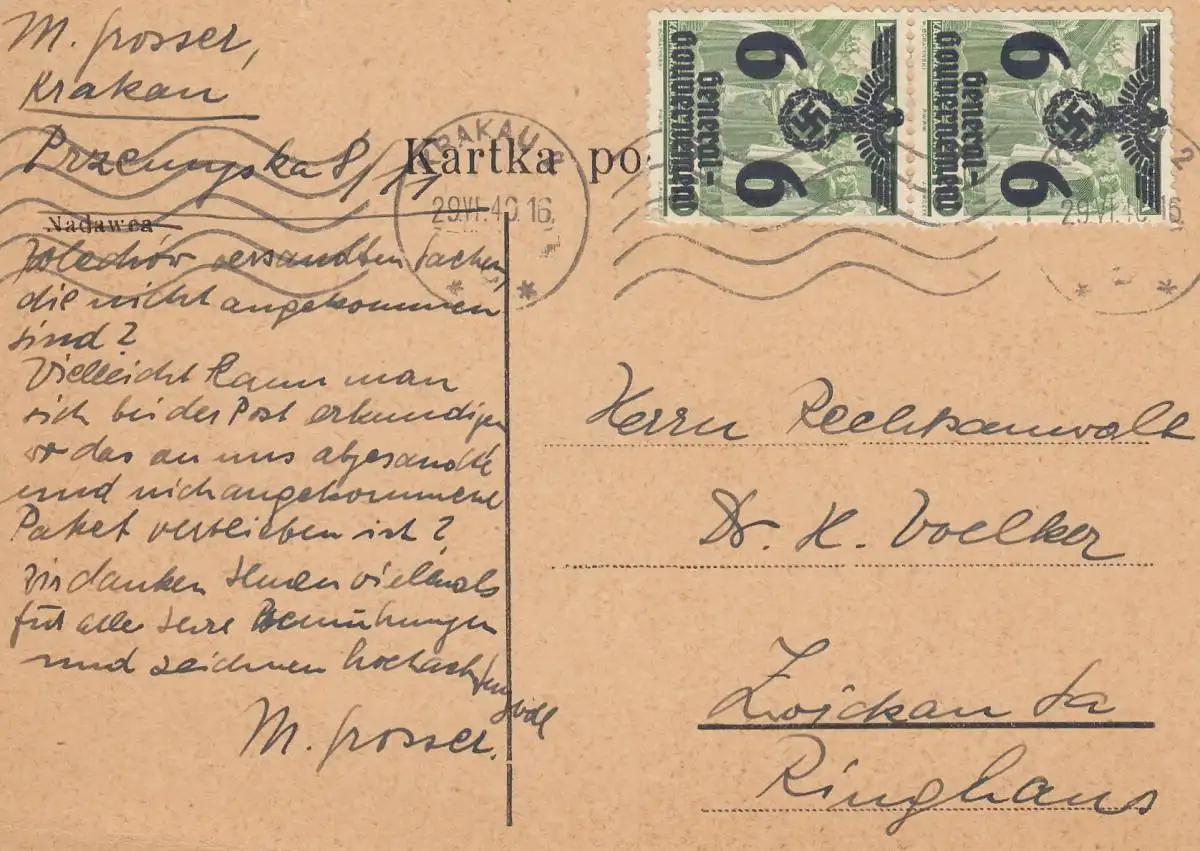 M. Grosser,
Krakau
Przemyska 8/11
Kartka po
Nadawca
KRAKAU 2
29.VI.40.16
2
29.VI.40.16
General-
Gouvernement
6 6
General-
Gouvernement
6 6
versandten Sachen,
die nicht angekommen
sind?
Vielleicht kann man
sich bei der Post erkundigen
wo das an uns abgesandte
und nichangekommene
Paket verblieben ist?
Wir danken Ihnen vielmals
für alle Ihre Bemühungen
und zeichnen hochachtungsvoll
M. Grosser.
Herrn Rechtsanwalt
Dr. H. Voelker
Zwickau Sa
Ringhaus